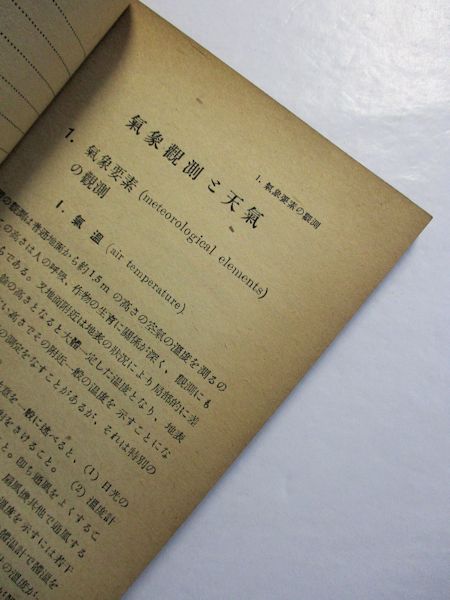 1. 氣象要素の觀測
氣象觀測と天氣
1. 氣象要素 (meteorological elements)
の觀測
1. 氣溫 (air temperature)
の觀測は普通地面から約1.5mの高さの空氣の溫度を測るの
の高さは人の呼吸、作物の生育に關係が深く、觀測にも
らである。又地面附近は地表の狀況により局部的に差
の高さとなると大體一定した溫度となり、地表
い高さでその附近一般の溫度を示すことにな
の測定をなすことがあるが、それは特別の
意を一般に述べると、(1) 日光の
をさけること。(2) 溫度計
と。卽ち通風をよくするこ
扇風機其他で通風する
溫度を示すには若干
體溫計で體溫を
の溫度が